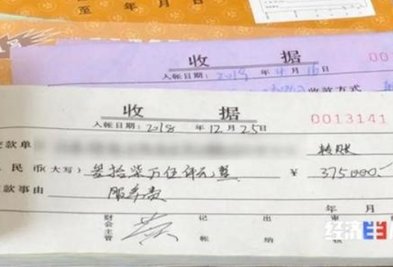 至 年 月
收 据
入帐日期: 2019 年 4 月 16 日
收款方式
收 据
入帐日期: 2018 年 12 月 25 日
0013141
款单 转账
民币(大写) 叁拾柒万伍仟元整 ¥ 375000.
款事由 服务费
年 月
财会主管 记帐 出纳 审
经济